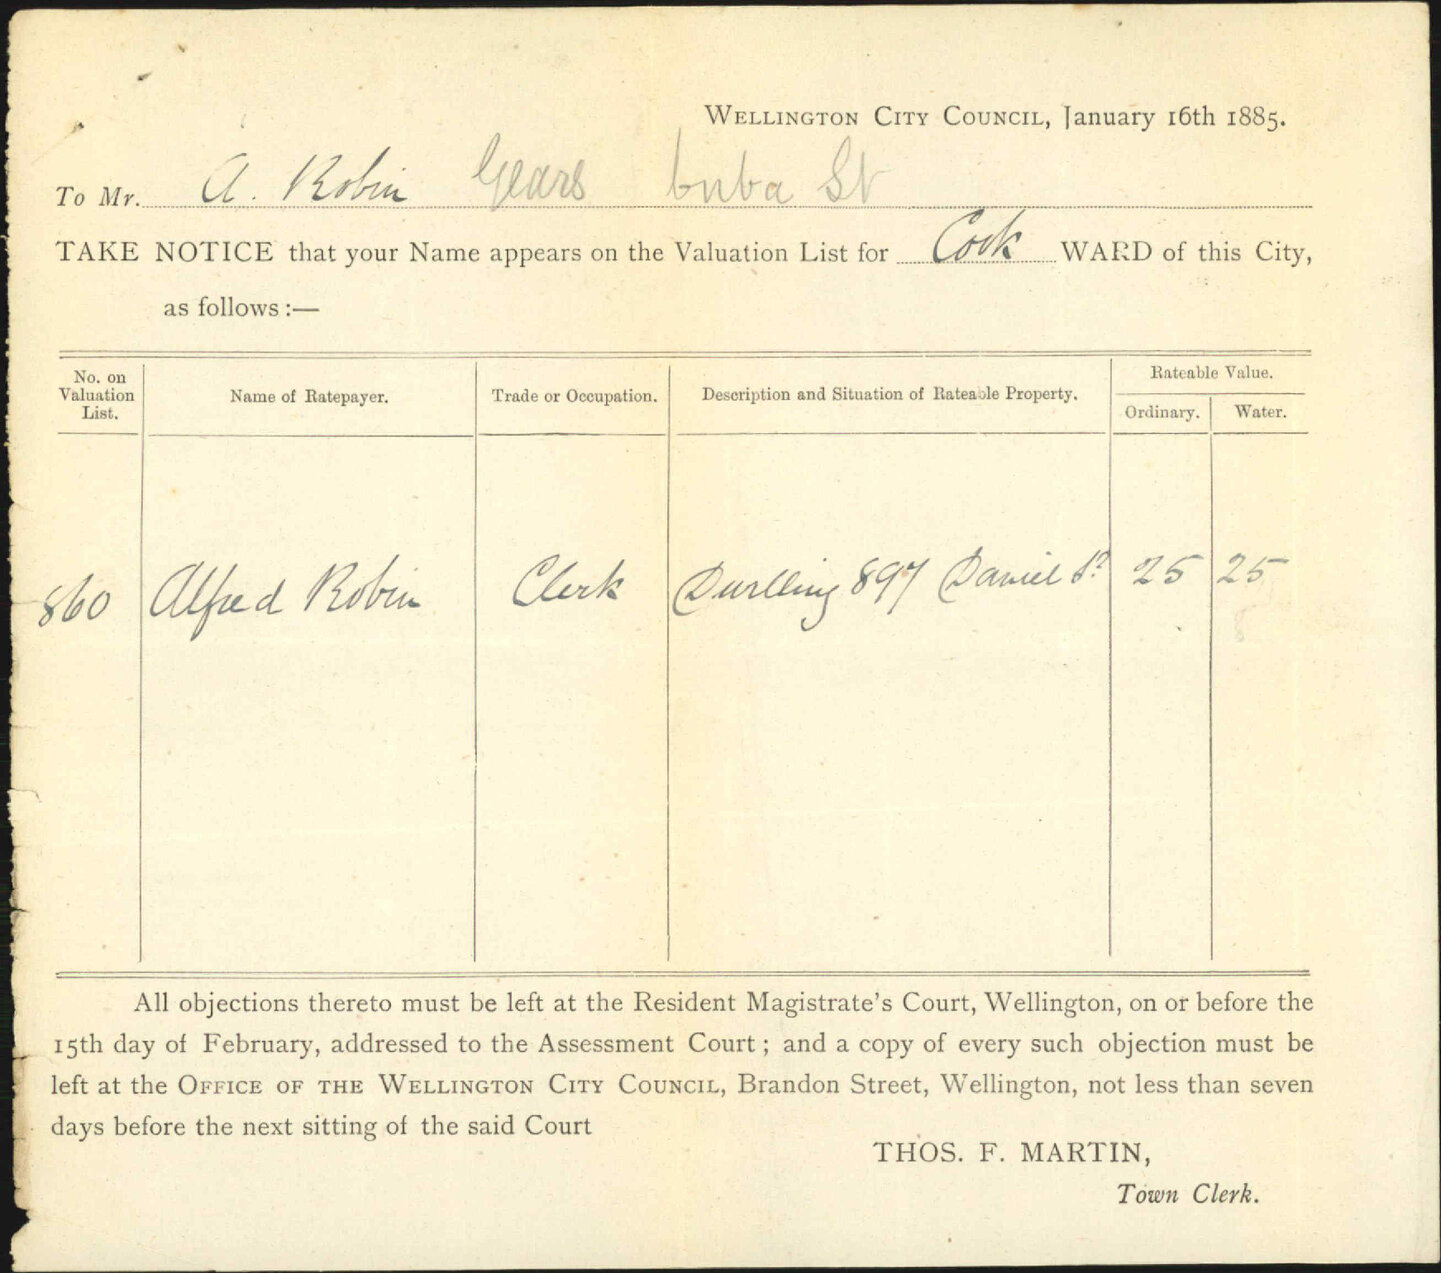 WELLINGTON CITY COUNCIL, January 16th 1885.
To Mr. A. Robin Gears Cuba St
TAKE NOTICE that your Name appears on the Valuation List for Cook WARD of this City,
as follows :—
No. on Valuation List.
Name of Ratepayer.
Trade or Occupation.
Description and Situation of Rateable Property.
Rateable Value.
Ordinary.
Water.
860 Alfred Robin Clerk Dwelling 897 Daniel St 25 25
All objections thereto must be left at the Resident Magistrate's Court, Wellington, on or before the
15th day of February, addressed to the Assessment Court ; and a copy of every such objection must be
left at the OFFICE OF THE WELLINGTON CITY COUNCIL, Brandon Street, Wellington, not less than seven
days before the next sitting of the said Court
THOS. F. MARTIN,
Town Clerk.